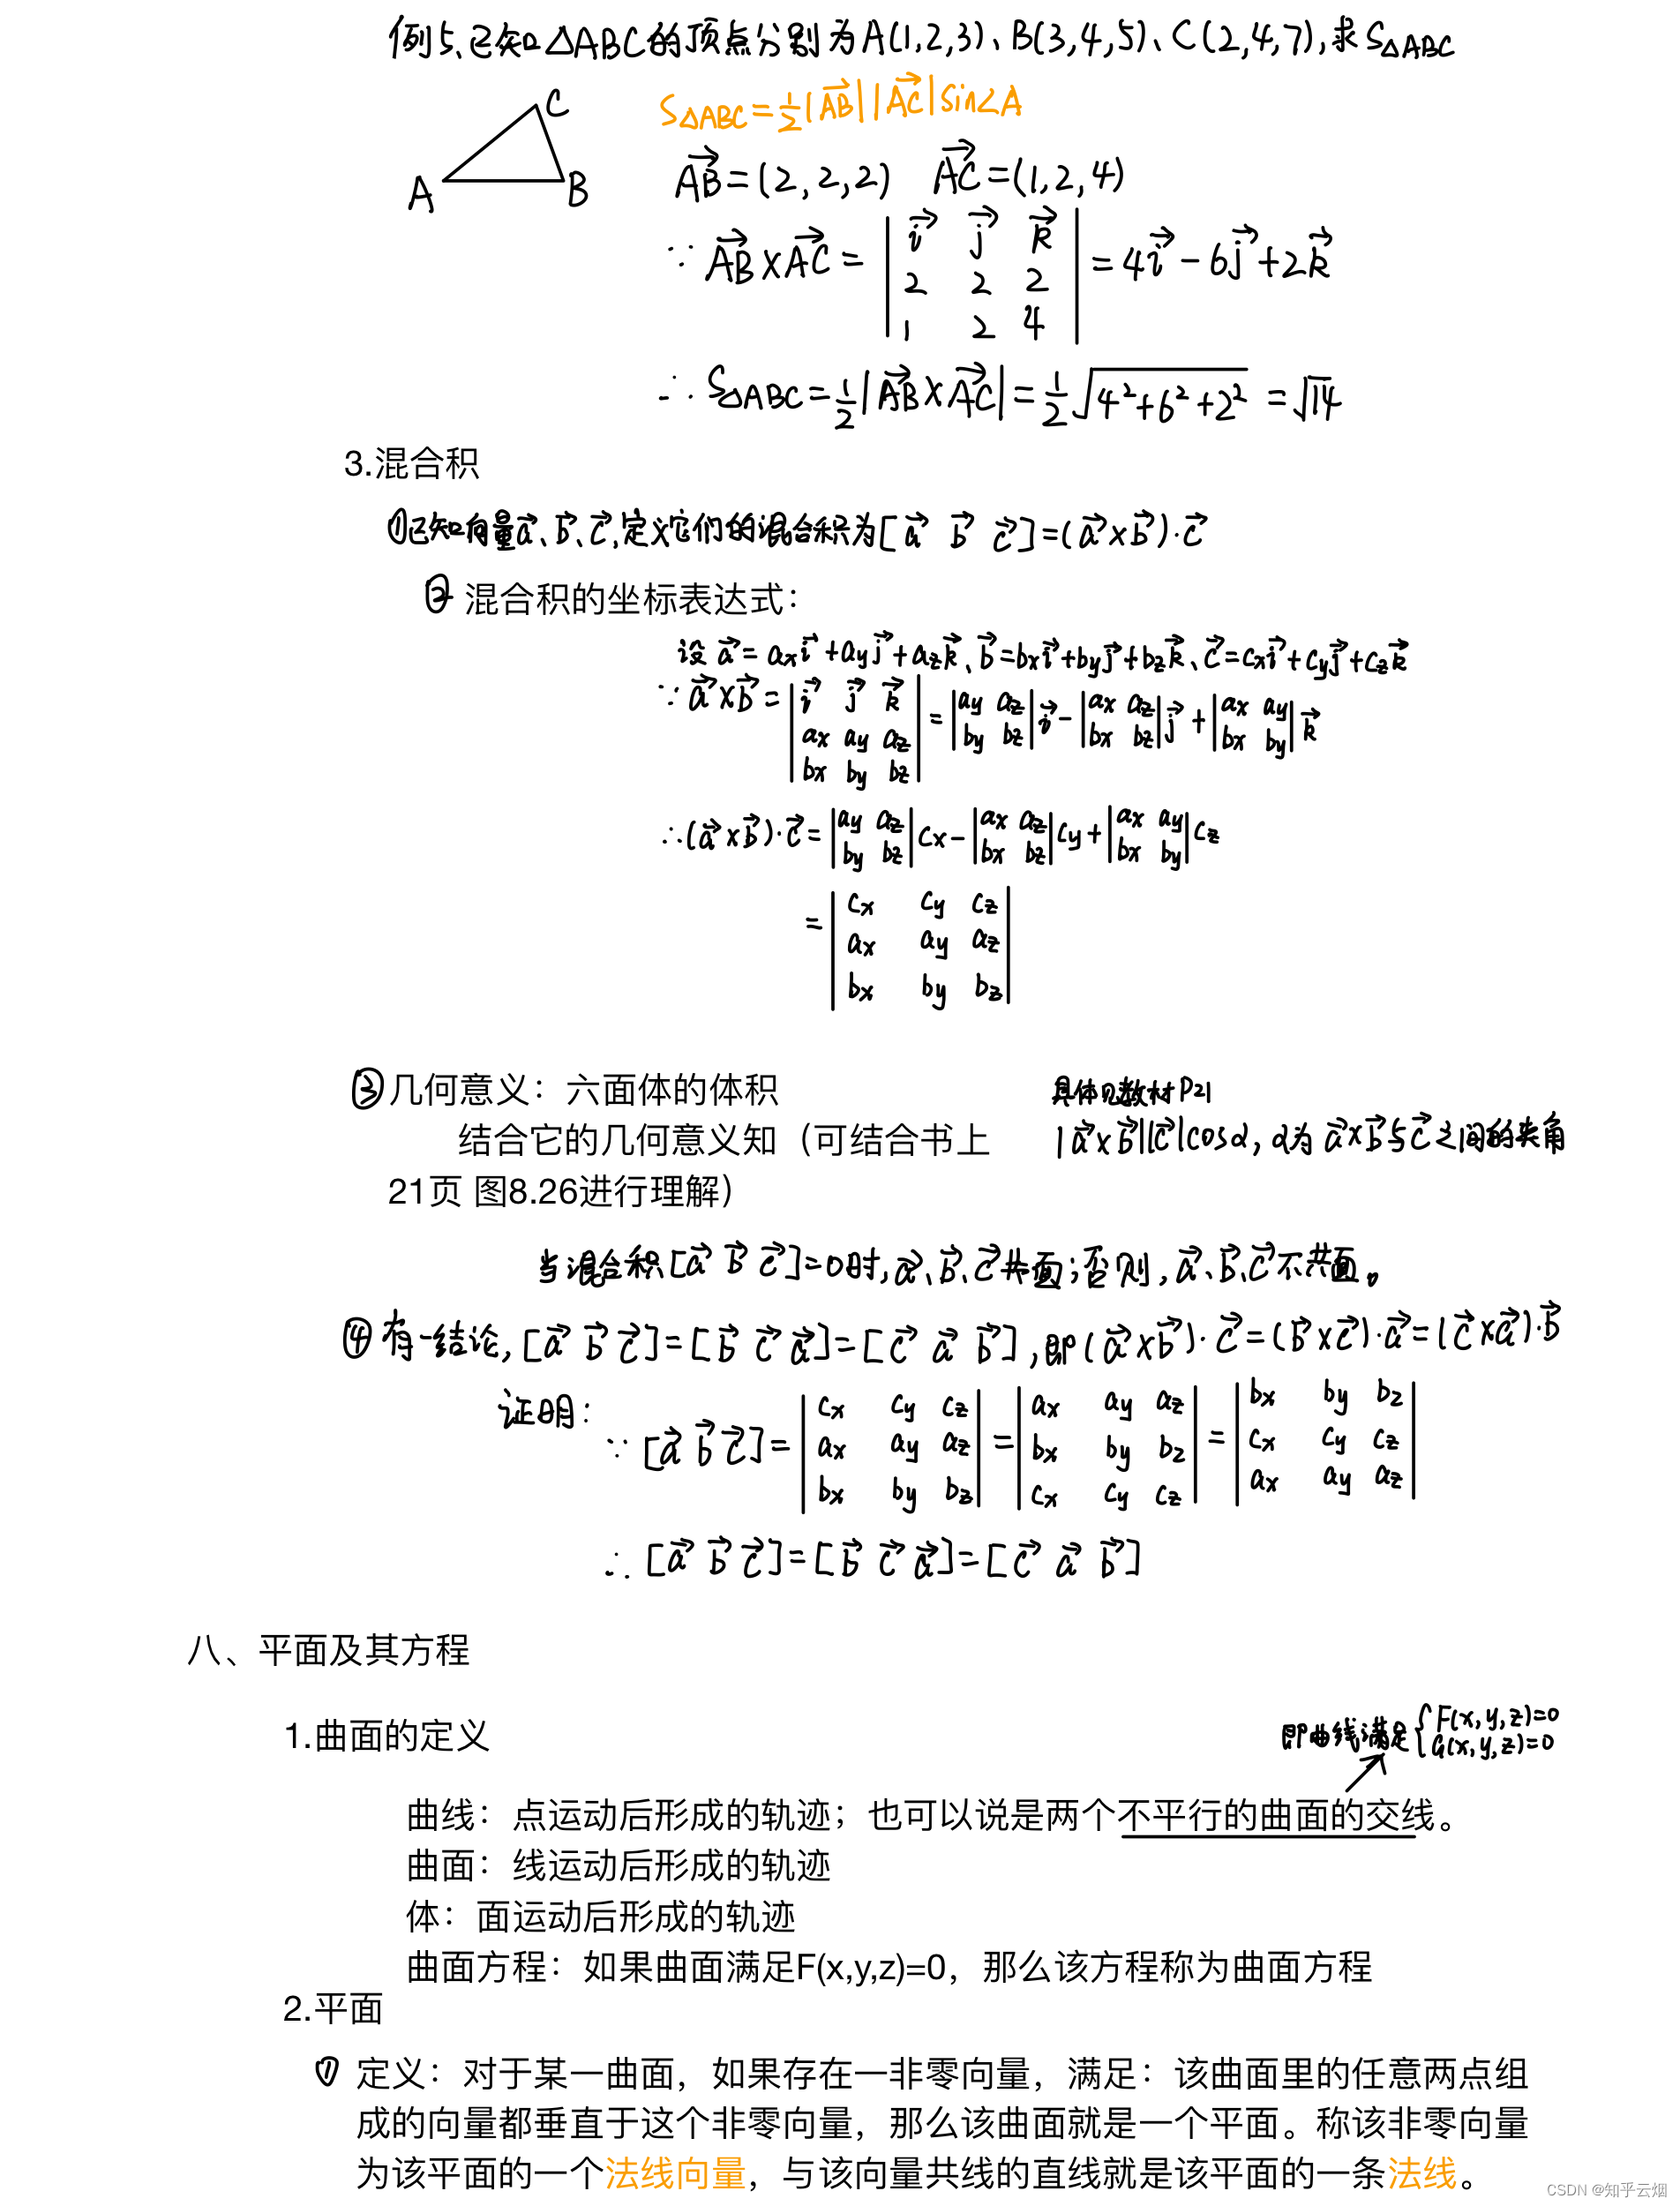 例5、已知△ABC的顶点分别为A(1,2,3)、B(3,4,5)、C(2,4,7),求S△ABC
S△ABC=½|AB→||AC→|sin∠A
C
A B
AB→=(2,2,2) AC→=(1,2,4)
∵ AB→×AC→= | i→ j→ k→ | =4i→-6j→+2k→
| 2 2 2 |
| 1 2 4 |
∴ S△ABC=½|AB→×AC→|=½√(4²+6²+2²)=√14
3.混合积
①已知向量a→、b→、c→,定义它们的混合积为[a→ b→ c→]=(a→×b→)·c→
② 混合积的坐标表达式：
设 a→=axi→+ayj→+azk→、b→=bxi→+byj→+bzk→、c→=cxi→+cyj→+czk→
∵ a→×b→= | i→ j→ k→ | = | ay az | i→ - | ax az | j→ + | ax ay | k→
| ax ay az | | by bz | | bx bz | | bx by |
| bx by bz |
∴(a→×b→)·c→= | ay az | cx - | ax az | cy + | ax ay | cz
| by bz | | bx bz | | bx by |
= | cx cy cz |
| ax ay az |
| bx by bz |
③几何意义：六面体的体积 具体见教材P21
结合它的几何意义知（可结合书上 |a→×b→||c→|cosα, α为a→×b→与c→之间的夹角
21页 图8.26进行理解）
当混合积[a→ b→ c→]=0时,a→、b→、c→共面;否则,a→、b→、c→不共面。
④有一结论,[a→ b→ c→]=[b→ c→ a→]=[c→ a→ b→],即(a→×b→)·c→=(b→×c→)·a→=(c→×a→)·b→
证明:
∵ [a→ b→ c→]= | cx cy cz | = | ax ay az | = | bx by bz |
| ax ay az | | bx by bz | | cx cy cz |
| bx by bz | | cx cy cz | | ax ay az |
∴ [a→ b→ c→]=[b→ c→ a→]=[c→ a→ b→]
八、平面及其方程
1.曲面的定义
即曲线满足{F(x,y,z)=0
G(x,y,z)=0
曲线：点运动后形成的轨迹；也可以说是两个不平行的曲面的交线。
曲面：线运动后形成的轨迹
体：面运动后形成的轨迹
曲面方程：如果曲面满足F(x,y,z)=0，那么该方程称为曲面方程
2.平面
① 定义：对于某一曲面，如果存在一非零向量，满足：该曲面里的任意两点组
成的向量都垂直于这个非零向量，那么该曲面就是一个平面。称该非零向量
为该平面的一个法线向量，与该向量共线的直线就是该平面的一条法线。
CSDN @知乎云烟